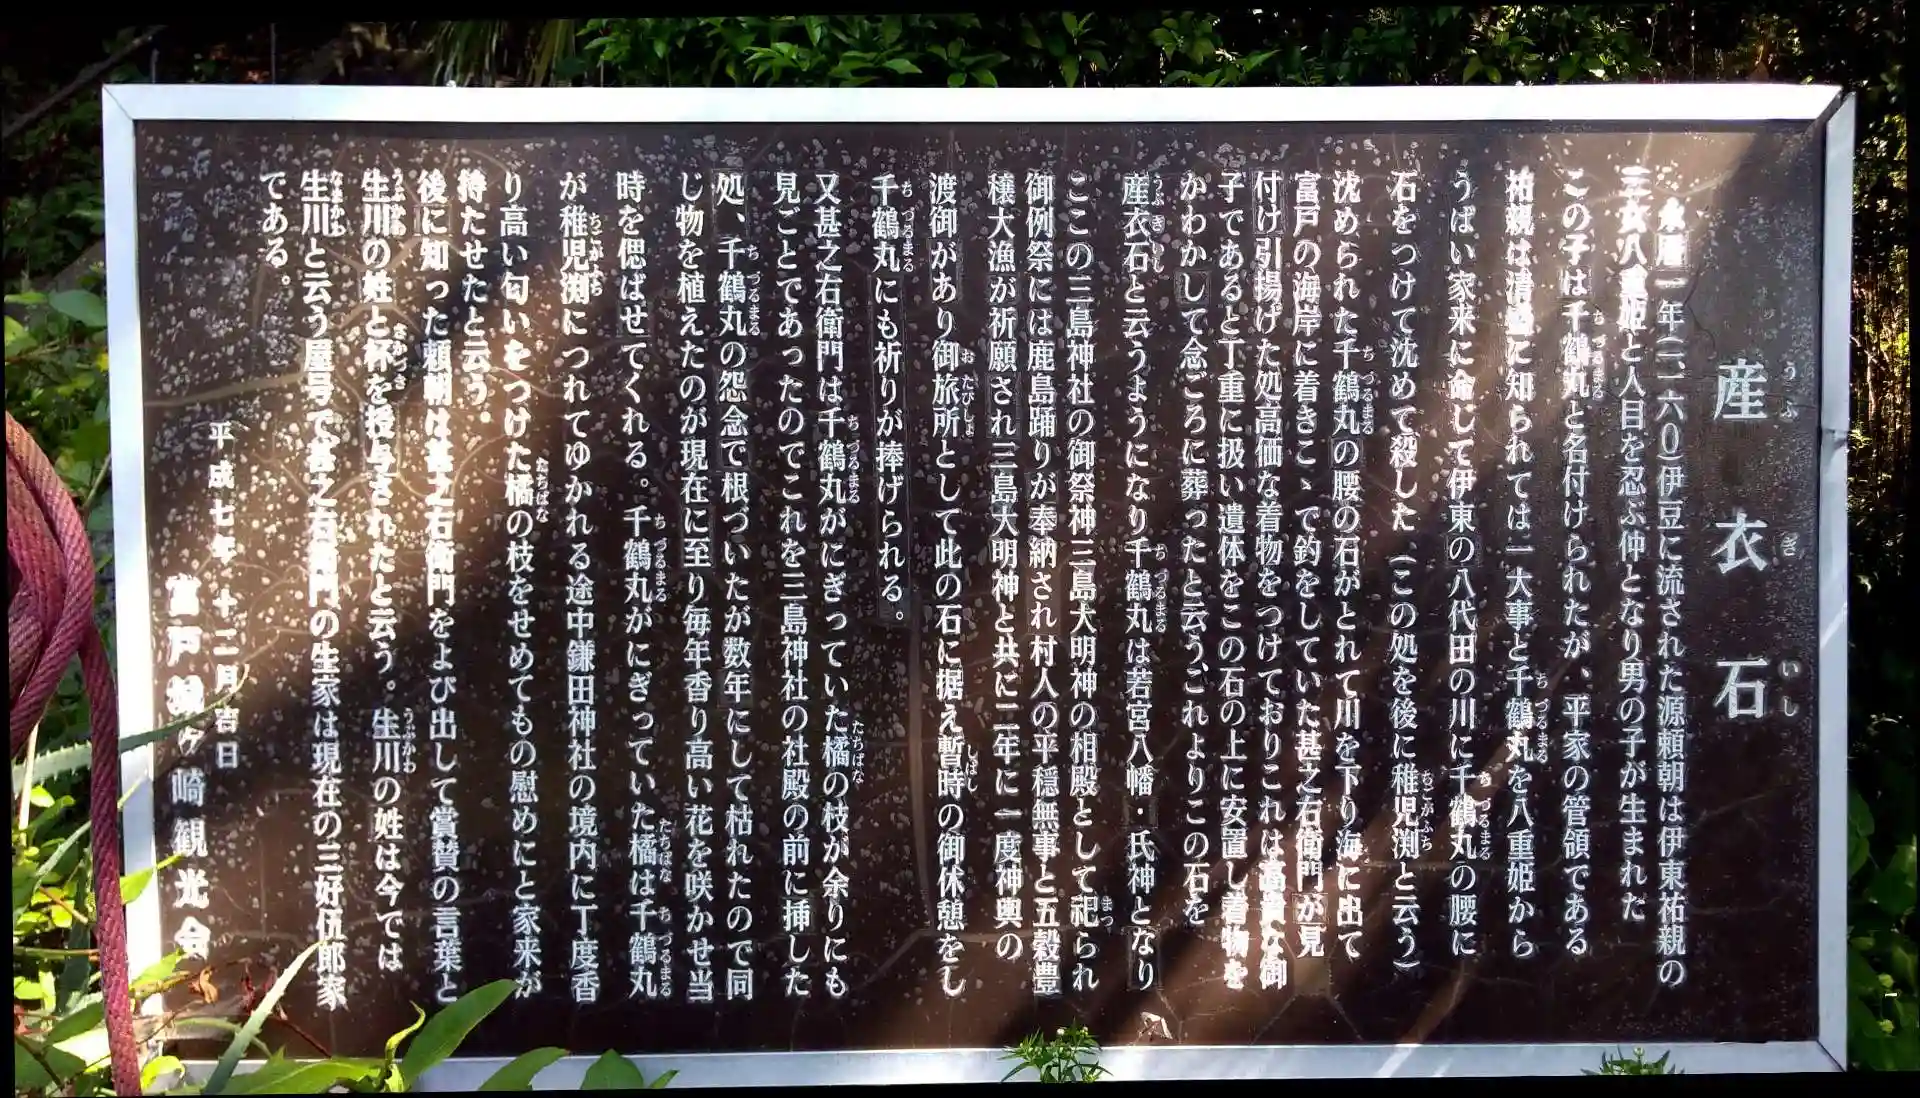 産衣石
永暦一年(一一六〇)伊豆に流された源頼朝は伊東祐親の
三女八重姫と人目を忍ぶ仲となり男の子が生まれた
この子は千鶴丸と名付けられたが、平家の管領である
祐親は清盛に知られては一大事と千鶴丸を八重姫から
うばい家来に命じて伊東の八代田の川に千鶴丸の腰に
石をつけて沈めて殺した(この処を後に稚児渕と云う)
沈められた千鶴丸の腰の石がとれて川を下り海に出て
富戸の海岸に着きこゝで釣をしていた甚之右衛門が見
付け引揚げた処高価な着物をつけておりこれは高貴な御
子であると丁重に扱い遺体をこの石の上に安置し着物を
かわかして念ごろに葬ったと云う、これよりこの石を
産衣石と云うようになり千鶴丸は若宮八幡・氏神となり
ここの三島神社の御祭神三島大明神の相殿として祀られ
御例祭には鹿島踊りが奉納され村人の平穏無事と五穀豊
穣大漁が祈願され三島大明神と共に二年に一度神輿の
渡御があり御旅所として此の石に据え暫時の御休憩をし
千鶴丸にも祈りが捧げられる。
又甚之右衛門は千鶴丸がにぎっていた橘の枝が余りにも
見ごとであったのでこれを三島神社の社殿の前に挿した
処、千鶴丸の怨念で根づいたが数年にして枯れたので同
じ物を植えたのが現在に至り毎年香り高い花を咲かせ当
時を偲ばせてくれる。千鶴丸がにぎっていた橘は千鶴丸
が稚児渕につれてゆかれる途中鎌田神社の境内に丁度香
り高い匂いをつけた橘の枝をせめてもの慰めにと家来が
持たせたと云う。
後に知った頼朝は甚之右衛門をよび出して賞賛の言葉と
生川の姓と杯を授与されたと云う。生川の姓は今では
生川と云う屋号で甚之右衛門の生家は現在の三好伍郎家
である。
平成七年十二月吉日
富戸城ヶ崎観光会